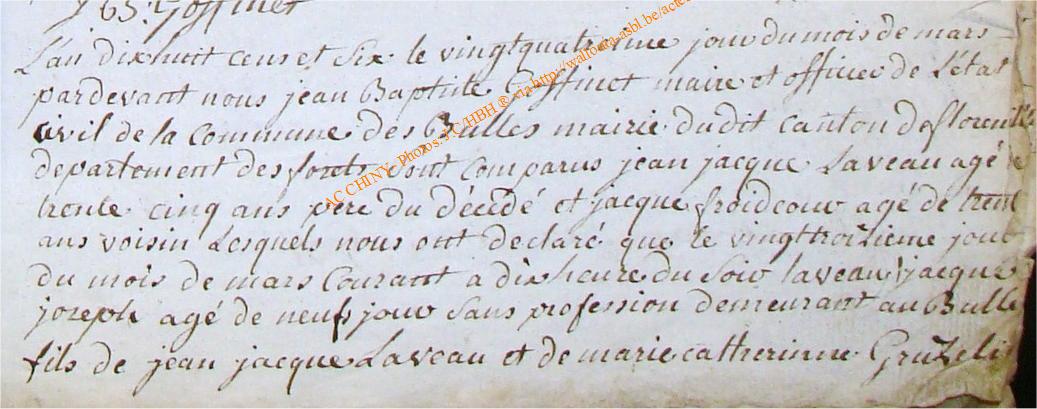 J B. Goffinet
L'an dix huit cens et six le vingtquatrieme jour du mois de mars
pardevant nous jean Baptiste Goffinet maire et officier de L'état
civil de la Commune des Bulles mairie dudit canton de florenville
departement des forets sont comparus jean jacque Laveau agé de
trente cinq ans pere du décédé et jacque froidcour agé de trent
ans voisin Lesquels nous ont declaré que le vingttroizieme jour
du mois de mars Courant a dix heure du Soir laveau jacque
joseph agé de neufs jour Sans profession demeurant au Bulle
fils de jean jacque Laveau et de marie catherinne Gruzeli
AC CHINY - Photos: JC/HBH ® via http://wallonia-asbl.be/actes